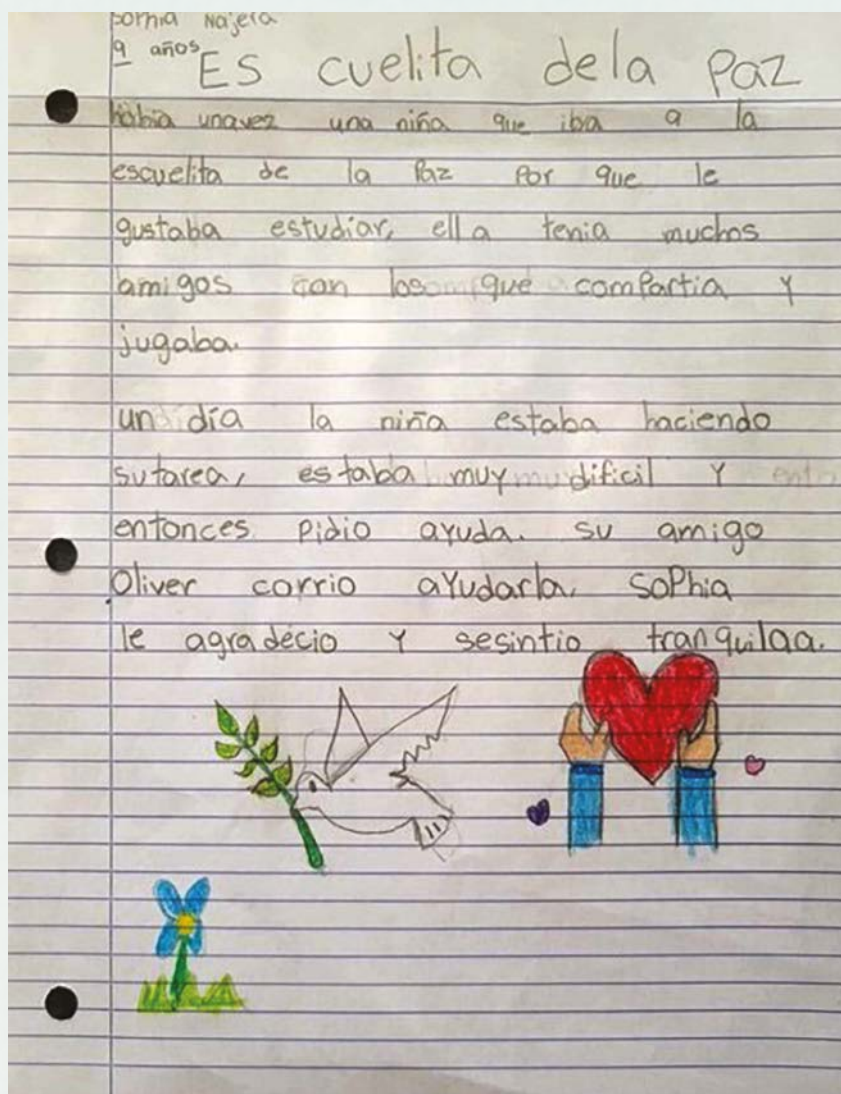 Sophia Najera
9 años
ES cuelita dela Paz
había unavez una niña que iba a la
escuelita de la Paz Por que le
gustaba estudiar, ella tenia muchos
amigos con los que compartia y
jugaba.
un día la niña estaba haciendo
sutarea, estaba muy dificil Y
entonces Pidio ayuda. su amigo
Oliver corrio aYudarla, SoPhia
le agradecio Y sesintio tranquilaa.